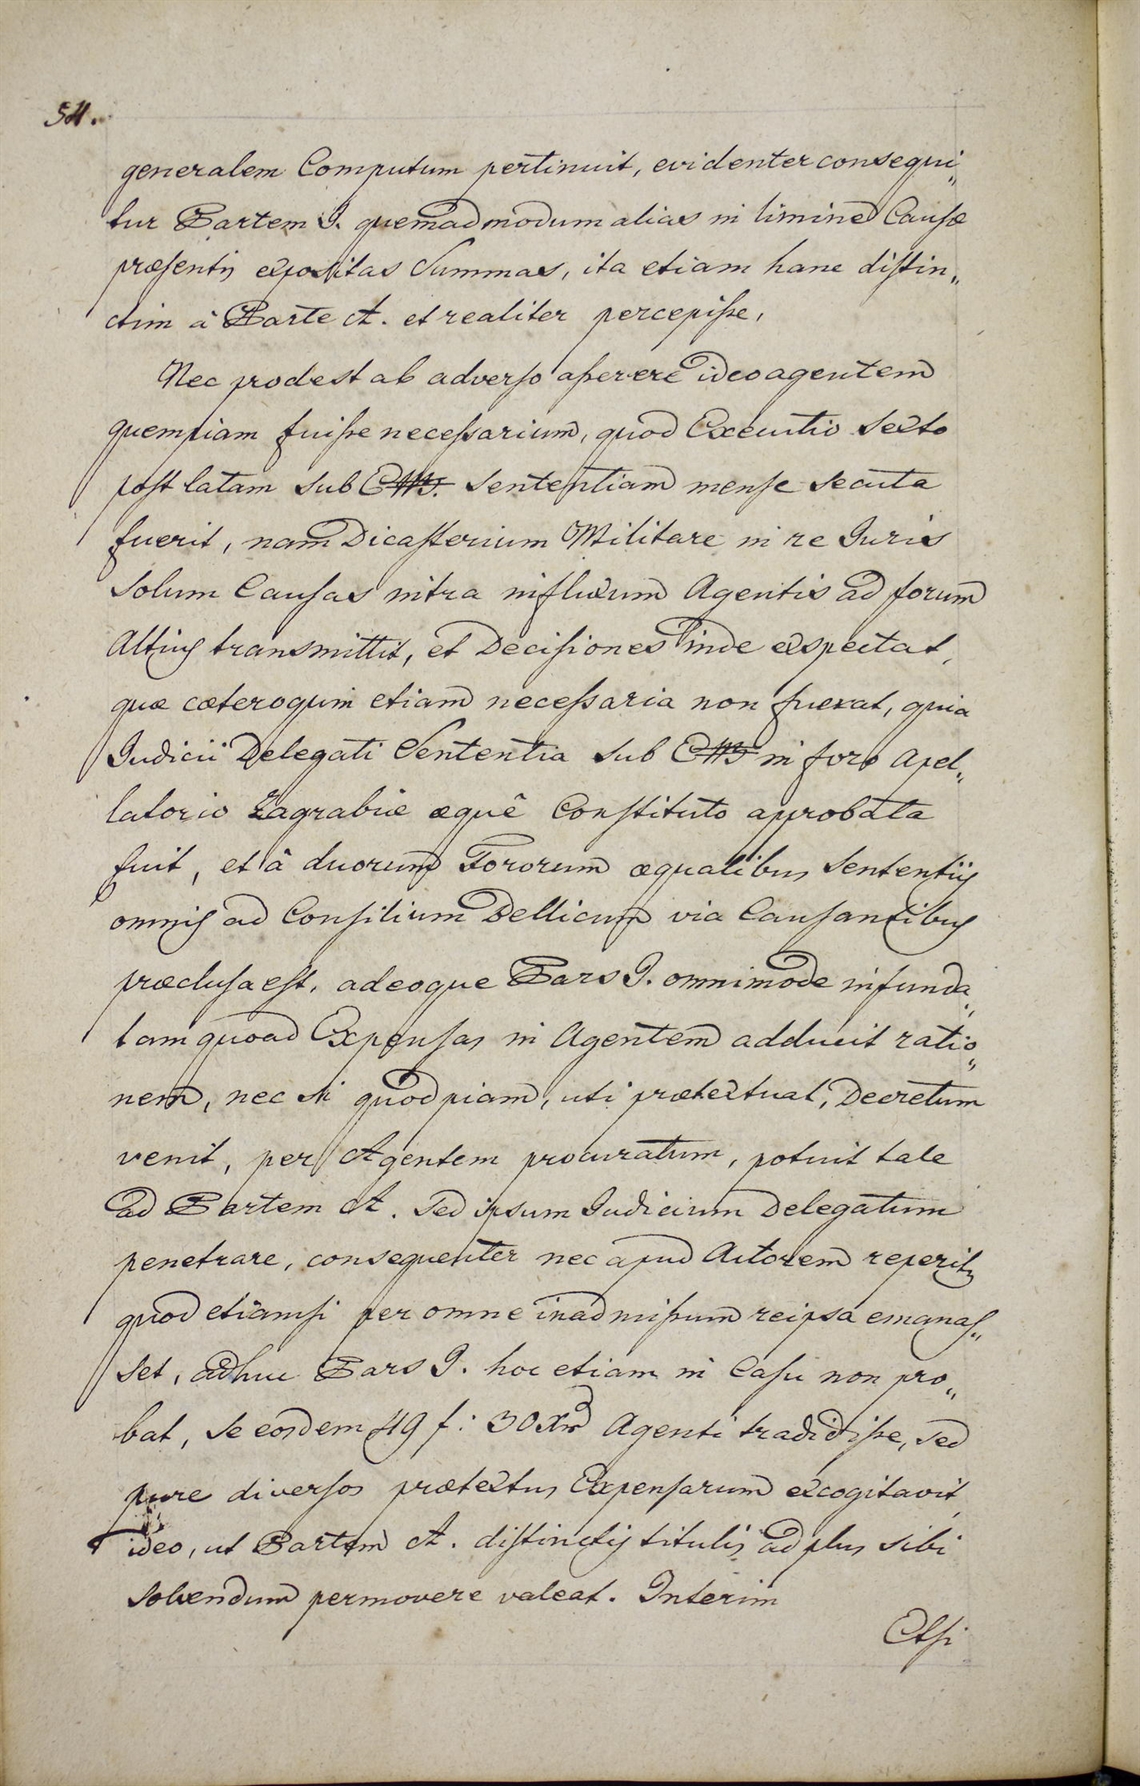 54.
generalem Computum pertinuit, evidenter consequi„
tur Partem I. quemadmodum alias in limine Causæ
præsentis expositas Summas, ita etiam hanc distin„
ctim â Parte A. et realiter percepisse,
Nec prodest ab adverso asserere ideo agentem
quempiam fuisse necessarium, quod Executio sexto
post latam sub sententiam mense secuta
fuerit, nam Dicasterium Militare in re Iuris
solum Causas intra influxum Agentis ad forum
Altius transmittit, et Decisiones inde exspectat,
quæ cæteroquin etiam necessaria non fuerat, quia
Iudicii Delegati Sententia sub in foro Apel„
latorio Zagrabiæ æquê Constituto approbata
fuit, et â duorum Fororum æqualibus Sententiis
omnis ad Consilium Bellicum via Causantibus
præclusa est, adeoque Pars I. omnimode infunda„
tam quoad Expensas in Agentem adducit ratio„
nem, nec si quodpiam, uti prætextuat, Decretum
venit, per Agentem procuratum, potuit tale
ad Partem A. sed ipsum Iudicium Delegatum
penetrare, consequenter nec apud Actorem reperitur
quod etiamsi per omne inadmissum reipsa emanas„
set, adhuc Pars I. hoc etiam in Casu non pro„
bat, se eosdem 49 f: 30 Xr Agenti tradidisse, sed
pure diversos prætextus Expensarum excogitavit
ideo, ut Partem A. distinctis titulis ad plus sibi
solvendum permovere valeat. Interim
Etsi